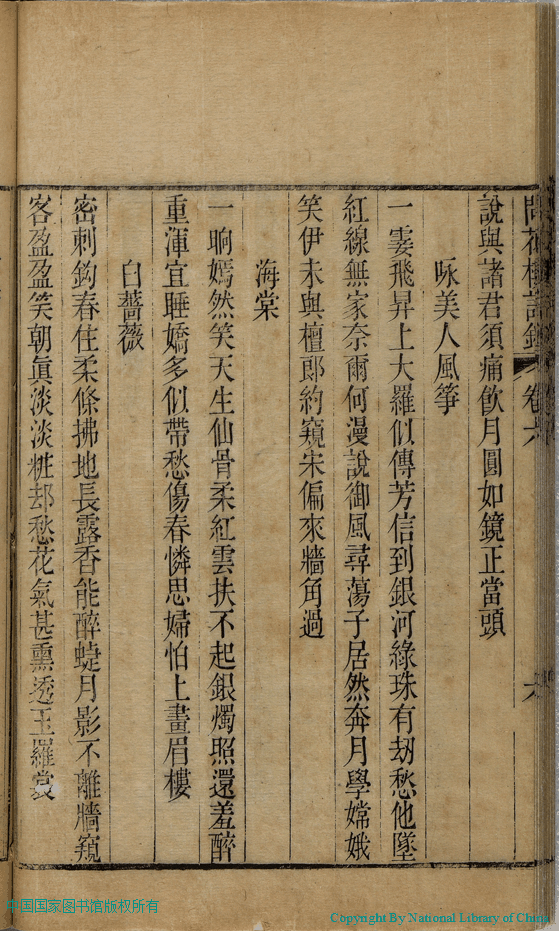 問花樓詩鈔 卷六 六
說與諸君須痛飮月圓如鏡正當頭
咏美人風箏
一霎飛昇上大羅似傳芳信到銀河綠珠有刼愁他墜
紅線無家奈爾何漫說御風尋蕩子居然奔月學嫦娥
笑伊未與檀郎約窺宋偏來牆角過
海棠
一晌嫣然笑天生仙骨柔紅雲扶不起銀燭照還羞醉
重渾宜睡嬌多似帶愁傷春憐思婦怕上畫眉樓
白薔薇
密刺鈎春住柔條拂地長露香能醉蜨月影不離牆窺
客盈盈笑朝眞淡淡粧却愁花氣甚熏透玉羅裳
中国国家图书馆版权所有
Copyright By National Library of China